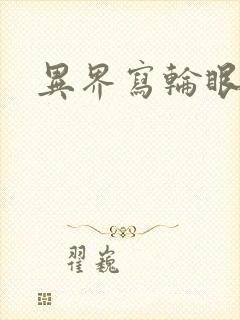 異界寫輪眼
翟巍